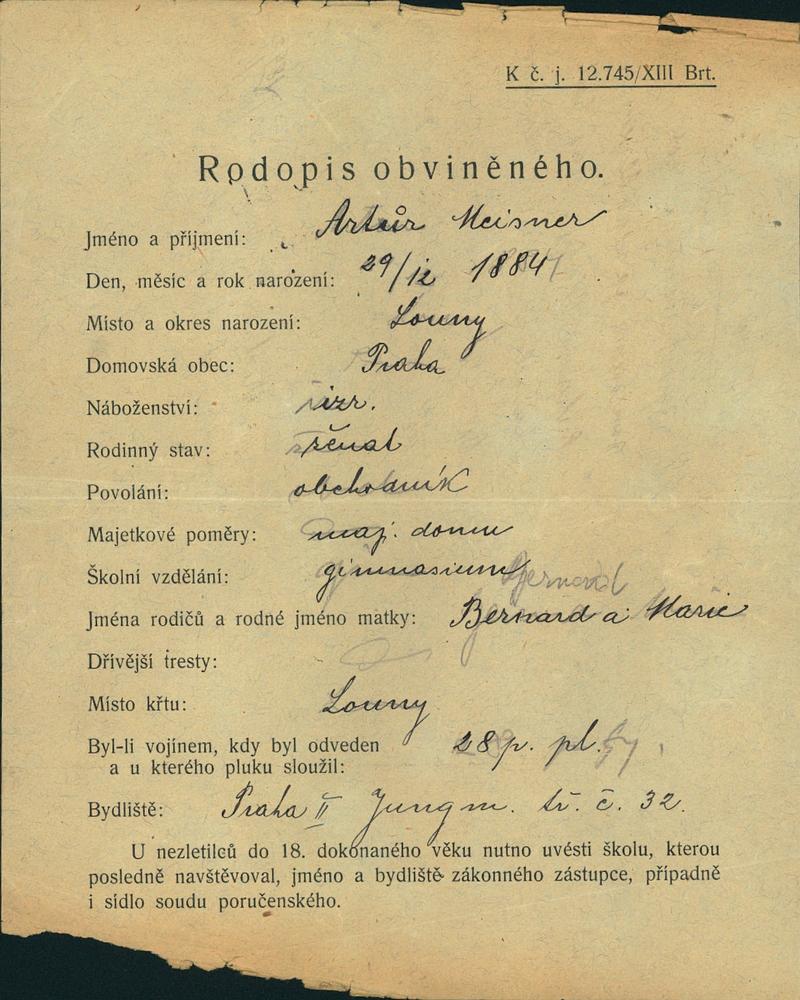 K č. j. 12.745/XIII Brt.
Rodopis obviněného.
Jméno a příjmení: Artur Meisner
Den, měsíc a rok narození: 29/12 1884
Místo a okres narození: Louny
Domovská obec: Praha
Náboženství: izr.
Rodinný stav: ženat
Povolání: obchodník
Majetkové poměry: maj. domu
Školní vzdělání: gimnasium
Jména rodičů a rodné jméno matky: Bernard a Marie
Dřívější tresty:
Místo křtu: Louny
Byl-li vojínem, kdy byl odveden 28 p. pl.
a u kterého pluku sloužil:
Bydliště: Praha II Jungm. tř. č. 32.
U nezletilců do 18. dokonaného věku nutno uvésti školu, kterou
posledně navštěvoval, jméno a bydliště zákonného zástupce, případně
i sídlo soudu poručenského.